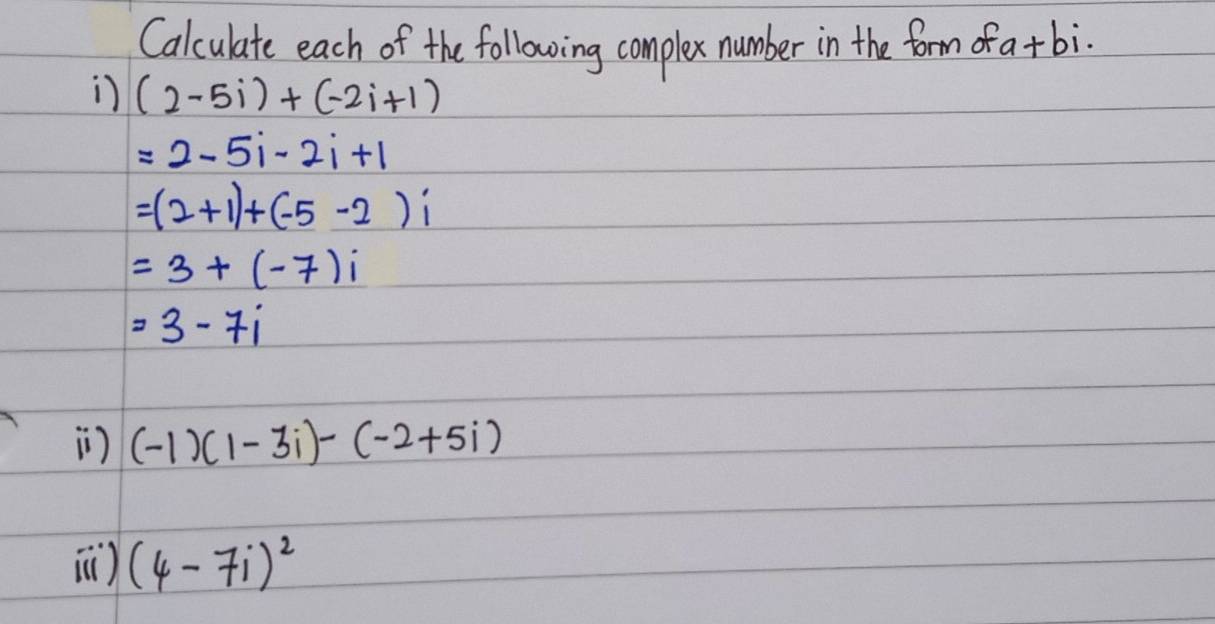 Calculate each of the following complex number in the form of a+bi.
i) (2-5i) + (-2i+1)
= 2 - 5i - 2i + 1
=(2+1)+(-5 -2 ) i
= 3 + (-7)i
= 3 - 7i
ii) (-1)(1-3i)- (-2+5i)
iii) (4 - 7i)²